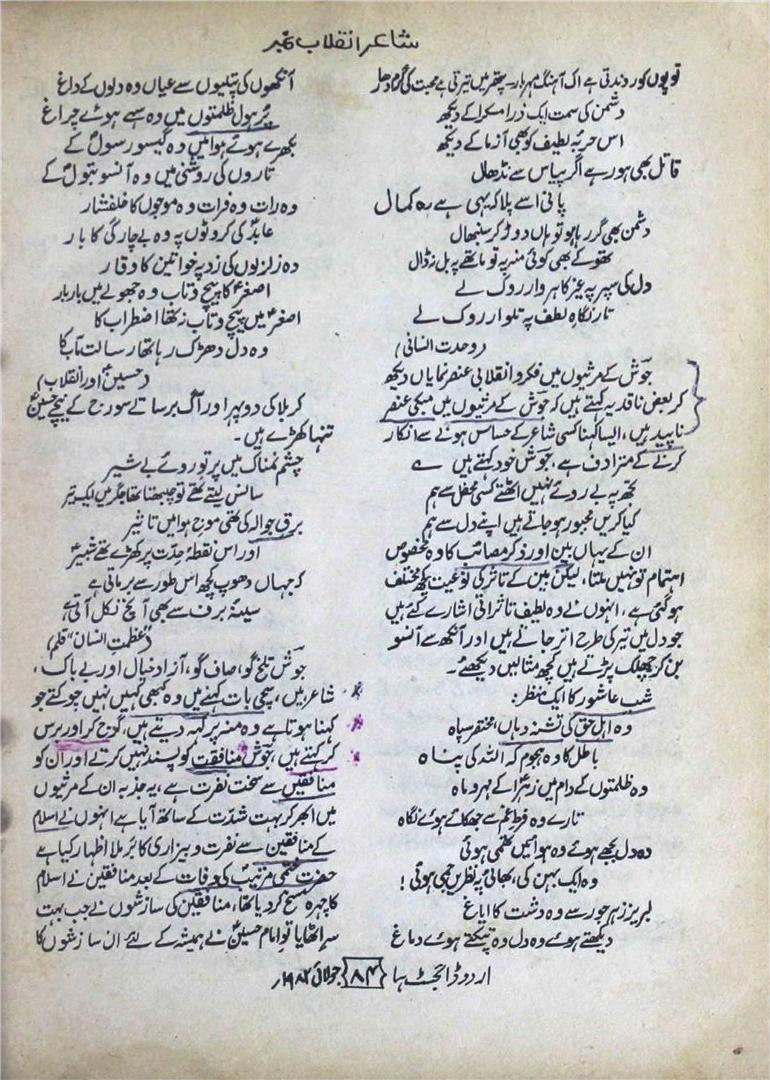 شاعر انقلاب نمبر
توپوں کو روندتی ہے اک آہنگ مہر بار۔ پتھر میں تیرتی ہے محبت کی گرم دھار
دشمن کی سمت ایک ذرا مسکرا کے دیکھ
اس حربۂ لطیف کو بھی آزما کے دیکھ
قاتل بھی ہو رہے اگر پیاس سے نڈھال
پانی اسے پلا کہ یہی ہے رہ کمال
دشمن بھی گر رہا ہو تو ہاں دوڑ کر سنبھال
تھوکے بھی کوئی منہ پہ تو ماتھے پہ بل نہ ڈال
دل کی سپر پہ غیر کا ہر وار روک لے
تار نگاہ لطف پہ تلوار روک لے
(وحدت انسانی)
جوش کے مرثیوں میں فکر و انقلابی عنصر نمایاں دیکھ
کر بعض ناقد یہ کہتے ہیں کہ جوش کے مرثیوں میں مبکی عنصر
ناپید ہیں، ایسا کہنا کسی شاعر کے حساس ہونے سے انکار
کرنے کے مترادف ہے، جوش خود کہتے ہیں ے
کچھ یہ بے روئے نہیں اٹھتے کسی محفل سے ہم
کیا کریں مجبور ہو جاتے ہیں اپنے دل سے ہم
ان کے یہاں بین اور ذکر مصائب کا وہ مخصوص
اہتمام تو نہیں ملتا، لیکن بین کے تاثر کی نوعیت کچھ مختلف
ہو گئی ہے، انہوں نے وہ لطیف تاثراتی اشارے کئے ہیں
جو دل میں تیر کی طرح اتر جاتے ہیں اور آنکھ سے آنسو
بن کر چھلک پڑتے ہیں کچھ مثالیں دیکھئے۔
شب عاشور کا ایک منظر:
وہ اہل حق کی تشنہ دہاں، مختصر سپاہ
باطل کا وہ ہجوم کہ اللہ کی پناہ
وہ ظلمتوں کے دام میں زہرا کے مہر و ماہ
تارے وہ فرط غم سے جھکائے ہوئے نگاہ
وہ دل بجھے ہوئے وہ ہوائیں تھمی ہوئی
وہ ایک بہن کی، بھائی پہ نظریں جمی ہوئی!
لبریز زہر جور سے وہ دشت کا ایاغ
دیکھتے ہوئے وہ دل وہ تپکتے ہوئے دماغ
آنکھوں کی پتلیوں سے عیاں وہ دلوں کے داغ
پر ہول ظلمتوں میں وہ سہمے ہوئے چراغ
بکھرے ہوئے ہوا میں وہ گیسو رسولؐ کے
تاروں کی روشنی میں وہ آنسو بتولؑ کے
وہ رات وہ فرات وہ موجوں کا خلفشار
عابدؑ کی کروٹوں پہ وہ بے چارگی کا بار
وہ زلزلوں کی زد پہ خواتین کا وقار
اصغرؑ کا پیچ و تاب وہ جھولے میں بار بار
اصغرؑ میں پیچ و تاب نہ تھا اضطراب کا
وہ دل دھڑک رہا تھا رسالت مآب کا
(حسینؑ اور انقلاب)
کربلا کی دوپہر اور آگ برساتے سورج کے نیچے حسینؑ
تنہا کھڑے ہیں۔
چشم نمناک میں پر تو روئے بے شیر
سانس لیتے تھے تو چبھتا تھا جگر میں ایک تیر
برق جوالہ کی تھی موج ہوا میں تاثیر
اور اس نقطۂ حدت پر کھڑے تھے شبیرؑ
کہ جہاں دھوپ کچھ اس طور سے برماتی ہے
سینۂ برف سے بھی آنچ نکل آتی ہے
(عظمت انسان "قلم)
جوش تلخ گو، صاف گو، آزاد خیال اور بے باک،
شاعر ہیں، سچی بات کہنے میں وہ کبھی کہیں نہیں چوکتے جو
کہنا ہوتا ہے وہ منہ پر کہہ دیتے ہیں، گرج کر اور برس
کر کہتے ہیں، جوش منافقت کو پسند نہیں کرتے اور ان کو
منافقین سے سخت نفرت ہے، یہ جذبہ ان کے مرثیوں
میں ابھر کر بہت شدت کے ساتھ آیا ہے انہوں نے اسلام
کے منافقین سے نفرت و بیزاری کا برملا اظہار کیا ہے
حضرت ختمی مرتبتؐ کی وفات کے بعد منافقین نے اسلام
کا چہرہ مسخ کر دیا تھا، منافقین کی سازشوں نے جب بہت
سر اٹھایا تو امام حسینؑ نے ہمیشہ کے لئے ان سازشوں کا
اردو ڈائجسٹ ہما ۸۴ جولائی ۱۹۸۲ء